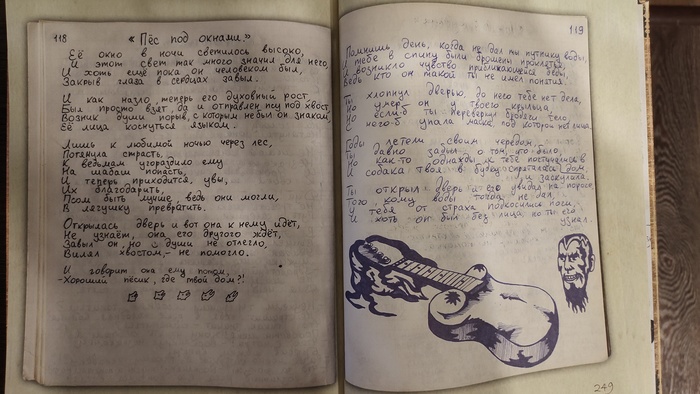 118
« Пёс под окнами.»
Её окно в ночи светилось высоко,
И этот свет так много значил для него,
И хоть ещё пока он человеком был,
Закрыв глаза в сердцах завыл.
И как назло, теперь его духовный рост
Был просто взят да и отправлен псу под хвост,
Возник души порыв, с которым не был он знаком,
Её лица коснуться языком.
Лишь к любимой ночью через лес,
Потянула страсть.
К ведьмам угораздило ему
На шабаш попасть,
И теперь приходится, увы,
Их благодарить,
Псом быть лучше, ведь они могли,
В лягушку превратить.
Открылась дверь и вот она к нему идёт,
Не узнаёт, она его другого ждёт,
Завыл он, но с души не отлегло,
Вилял хвостом,- не помогло.
И говорит она ему потом,
-Хороший пёсик, где твой дом?!
119
Помнишь, день, когда не дал ты путнику воды,
И тебе в спину были брошены проклятья,
И возникло чувство приближающейся беды,
Ведь кто он такой ты не имел понятия.
Ты хлопнул дверью, до него тебе нет дела,
Но умер он у твоего крыльца,
Но если б ты перевернул бродяги тело,
С него б упала маска, под которой нет лица.
Годы летели своим чередом,
Ты давно забыл о том, что было,
И как-то однажды к тебе постучался в дом,
И собака твоя в будку спряталась
и заскулила.
Ты открыл дверь и его увидал на пороге,
Того, кому воды тогда не дал,
У тебя от страха подкосились ноги,
И хоть он был без лица, но ты его
узнал.
249